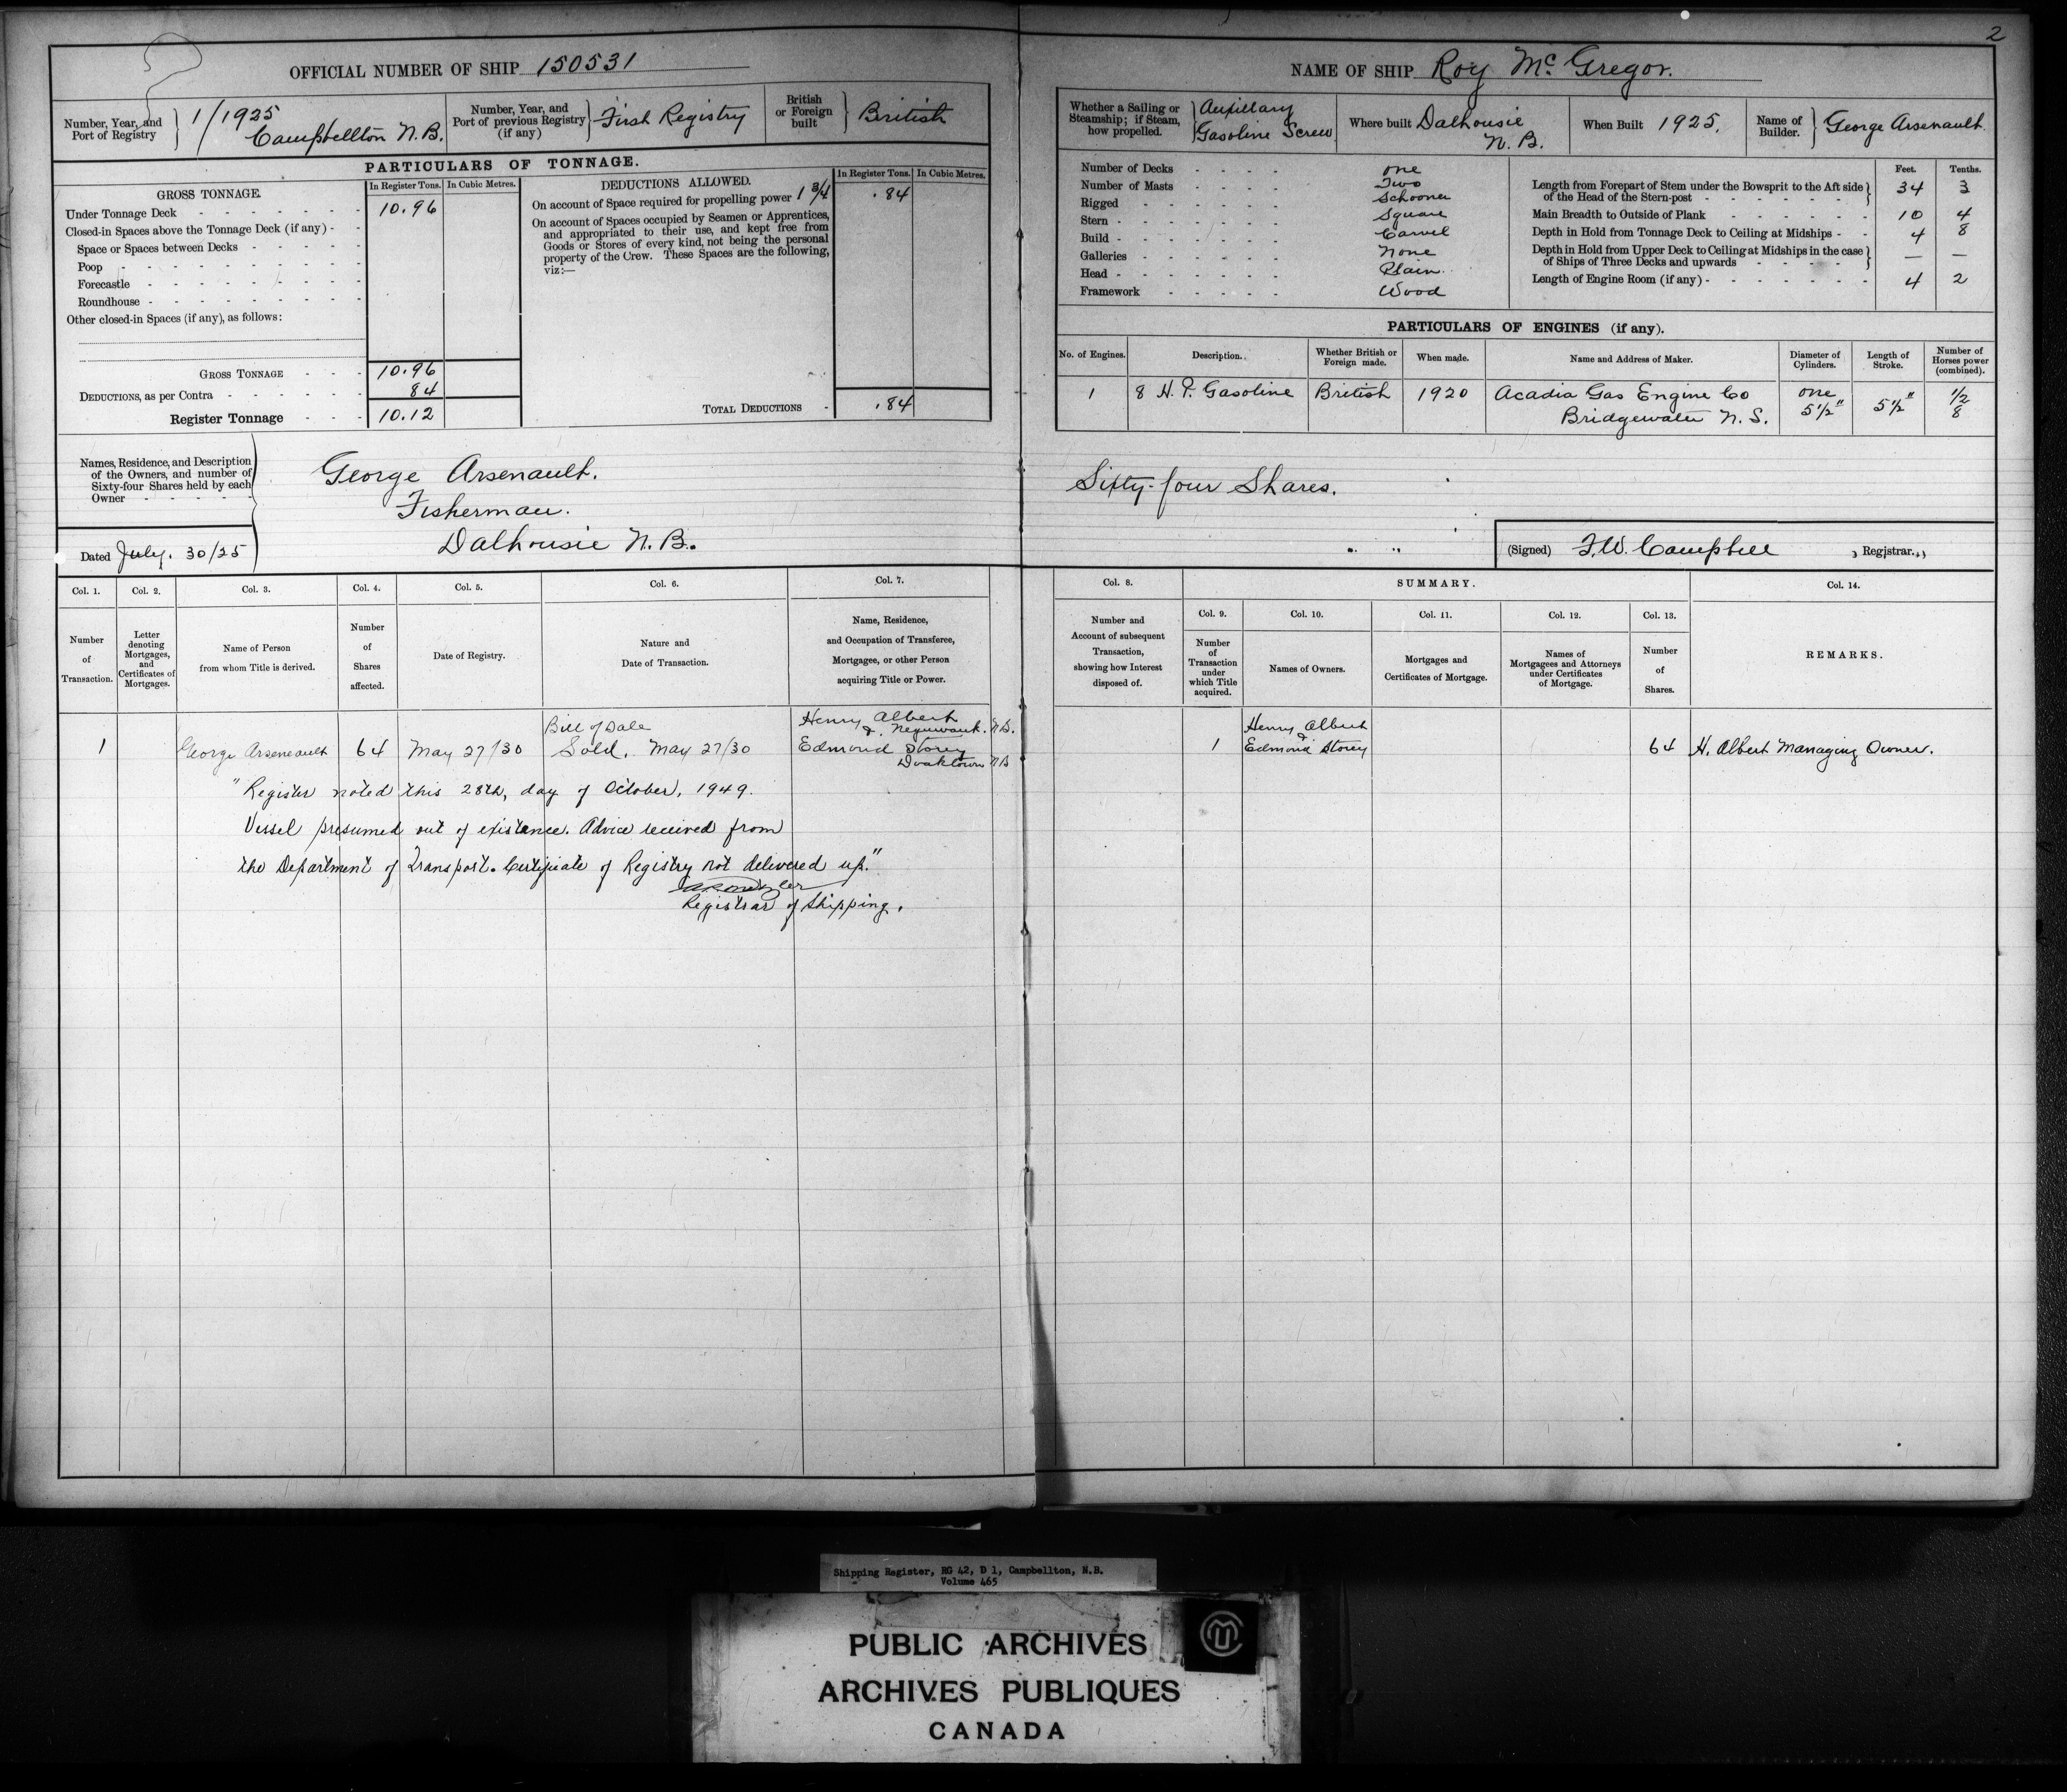 2
OFFICIAL NUMBER OF SHIP 150531
Number, Year, and Port of Registry } 1/1925 Campbellton N.B.
Number, Year, and Port of previous Registry (if any) } First Registry
British or Foreign built } British
PARTICULARS OF TONNAGE.
GROSS TONNAGE.
In Register Tons. In Cubic Metres.
Under Tonnage Deck 10.96
Closed-in Spaces above the Tonnage Deck (if any)
Space or Spaces between Decks
Poop
Forecastle
Roundhouse
Other closed-in Spaces (if any), as follows:
GROSS TONNAGE 10.96
DEDUCTIONS, as per Contra 84
Register Tonnage 10.12
DEDUCTIONS ALLOWED.
In Register Tons. In Cubic Metres.
On account of Space required for propelling power 1 3/4 .84
On account of Spaces occupied by Seamen or Apprentices,
and appropriated to their use, and kept free from
Goods or Stores of every kind, not being the personal
property of the Crew. These Spaces are the following,
viz:—
TOTAL DEDUCTIONS .84
Names, Residence, and Description
of the Owners, and number of
Sixty-four Shares held by each
Owner
George Arsenault.
Fisherman.
Dalhousie N.B.
Dated July. 30/25
NAME OF SHIP Roy Mc Gregor.
Whether a Sailing or Steamship; if Steam, how propelled. } Auxillary Gasoline Screw
Where built Dalhousie N.B.
When Built 1925.
Name of Builder. } George Arsenault.
Number of Decks one
Number of Masts Two
Rigged Schooner
Stern Square
Build Carvel
Galleries None
Head Plain
Framework Wood
Feet. Tenths.
Length from Forepart of Stem under the Bowsprit to the Aft side of the Head of the Stern-post } 34 3
Main Breadth to Outside of Plank 10 4
Depth in Hold from Tonnage Deck to Ceiling at Midships 4 8
Depth in Hold from Upper Deck to Ceiling at Midships in the case of Ships of Three Decks and upwards } — —
Length of Engine Room (if any) 4 2
PARTICULARS OF ENGINES (if any).
No. of Engines. Description. Whether British or Foreign made. When made. Name and Address of Maker. Diameter of Cylinders. Length of Stroke. Number of Horses power (combined).
1 8 H.P. Gasoline British 1920 Acadia Gas Engine Co one 5 1/2" 5 1/2" 1/2
Bridgewater N.S. 8
Sixty-four Shares.
(Signed) F.W. Campbell , Registrar.
Col. 1. Col. 2. Col. 3. Col. 4. Col. 5. Col. 6. Col. 7.
Number of Transaction.
Letter denoting Mortgages, and Certificates of Mortgages.
Name of Person from whom Title is derived.
Number of Shares affected.
Date of Registry.
Nature and Date of Transaction.
Name, Residence, and Occupation of Transferee, Mortgagee, or other Person acquiring Title or Power.
Col. 8. SUMMARY. Col. 14.
Col. 9. Col. 10. Col. 11. Col. 12. Col. 13.
Number and Account of subsequent Transaction, showing how Interest disposed of.
Number of Transaction under which Title acquired.
Names of Owners.
Mortgages and Certificates of Mortgage.
Names of Mortgagees and Attorneys under Certificates of Mortgage.
Number of Shares.
REMARKS.
Bill of Sale Henry Albert
& N.B.
1 George Arseneault 64 May 27/30 Sold. May 27/30 Edmond Storey
Doaktown NB
Henry Albert
&
1 Edmond Storey 64 H. Albert Managing Owner.
"Register noted this 28th, day of October, 1949.
Vessel presumed out of existance. Advice received from
the Department of Transport. Certificate of Registry not delivered up."
Registrar of Shipping.
Shipping Register, RG 42, D 1, Campbellton, N.B.
Volume 465
PUBLIC ARCHIVES
ARCHIVES PUBLIQUES
CANADA